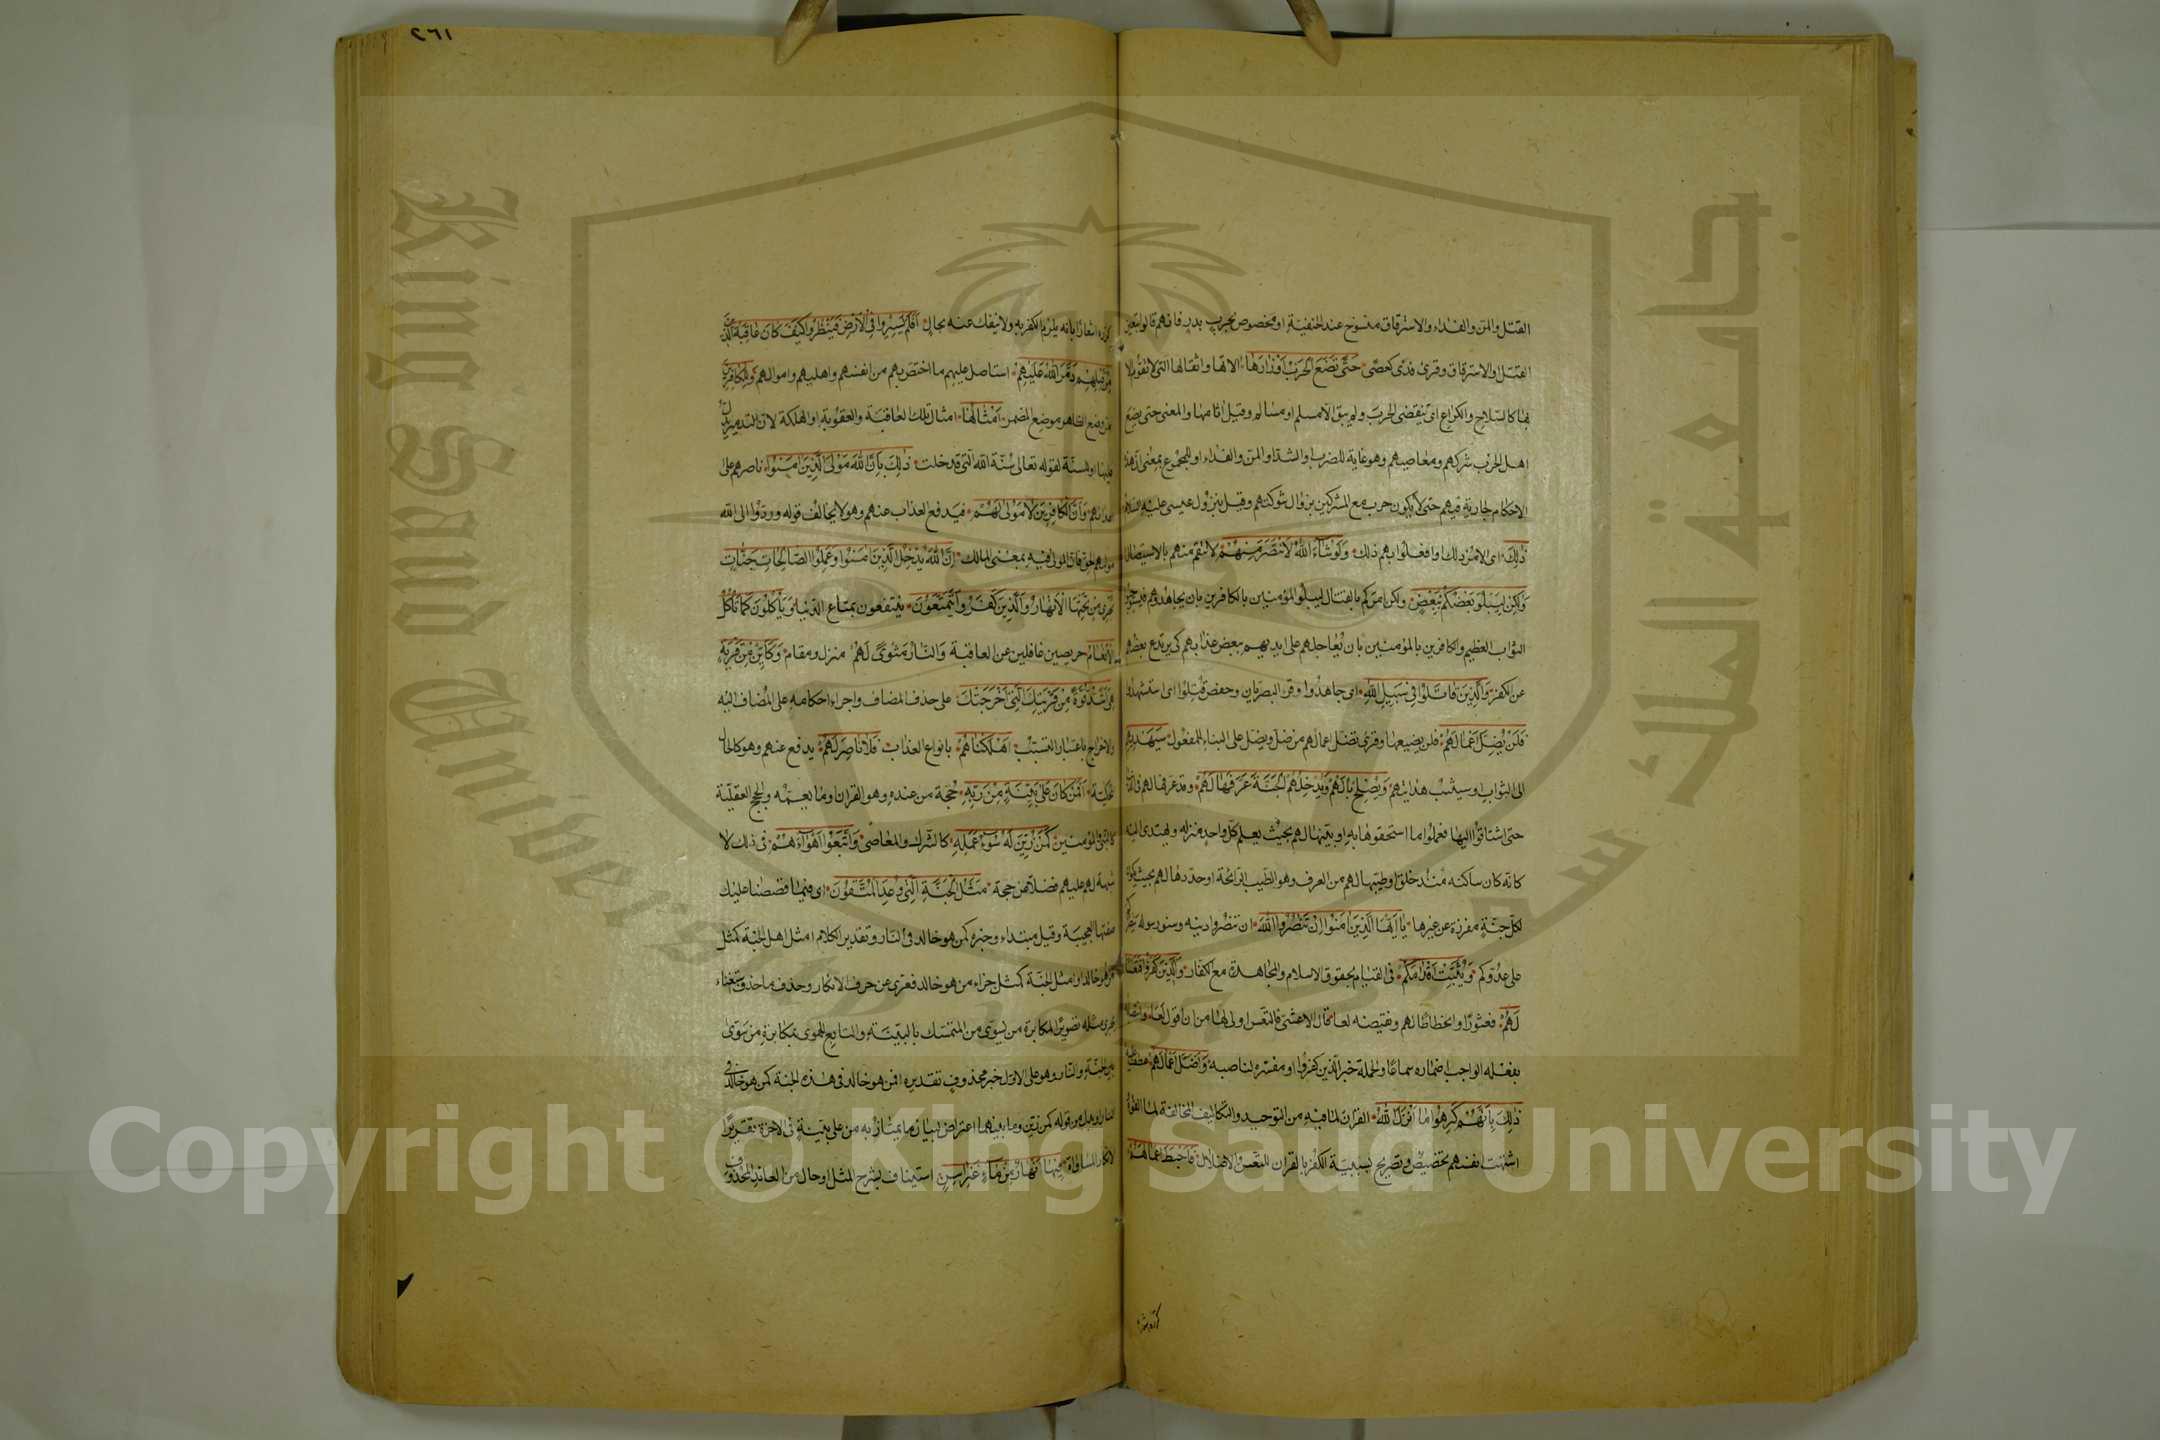 القتل والمن والفداء والاسترقاق منسوخ عند الحنفية او مخصوص بحرب بدر فانهم قالوا بتعين
القتل او الاسترقاق وقرئ فدى كعصى حَتَّى تَضَعَ الْحَرْبُ أَوْزَارَهَا الاتها واثقالها التي لا تقوم الا
بها كالسلاح والكراع اى تنقضى الحرب ولم يبق الا مسلم او مسالم وقيل اثامها والمعنى حتى يضع
اهل الحرب شركهم ومعاصيهم وهو غاية للضرب او الشد او المن والفداء او للمجموع بمعنى ان هذه
الاحكام جارية فيهم حتى لا يكون حرب مع المشركين بزوال شوكتهم وقيل بنزول عيسى عليه السلام
ذٰلِكَ اى الامر ذلك او افعلوا بهم ذلك وَلَوْ شَاءَ اللهُ لَانْتَصَرَ مِنْهُمْ لانتقم منهم بالاستئصال
وَلٰكِنْ لِيَبْلُوَ بَعْضَكُمْ بِبَعْضٍ ولكن امركم بالقتال ليبلو المؤمنين بالكافرين بان يجاهدوهم فيستوجبوا
الثواب العظيم والكافرين بالمؤمنين بان يعاجلهم على ايديهم ببعض عذابهم كى يرتدع بعضهم
عن الكفر وَالَّذِينَ قَاتَلُوا فِي سَبِيلِ اللهِ اى جاهدوا وقرأ البصريان وحفص قُتِلُوا اى استشهدوا
فَلَنْ يُضِلَّ أَعْمَالَهُمْ فلن يضيعها وقرئ تضل اعمالهم من ضل ويضل على البناء للمفعول سَيَهْدِيهِمْ
الى الثواب او سيثبت هدايتهم وَيُصْلِحُ بَالَهُمْ وَيُدْخِلُهُمُ الْجَنَّةَ عَرَّفَهَا لَهُمْ وقد عرفها لهم فى الدنيا
حتى اشتاقوا اليها فعملوا ما استحقوها به او بينها لهم بحيث يعلم كل واحد منزله ويهتدى اليه
كانه كان ساكنه منذ خلق او طيبها لهم من العرف وهو الطيب الرائحة او حددها لهم بحيث يكون
لكل جنة مفرزة عن غيرها يَا أَيُّهَا الَّذِينَ اٰمَنُوا إِنْ تَنْصُرُوا اللهَ ان تنصروا دينه ورسوله يَنْصُرْكُمْ
على عدوكم وَيُثَبِّتْ أَقْدَامَكُمْ فى القيام بحقوق الاسلام والمجاهدة مع الكفار وَالَّذِينَ كَفَرُوا فَتَعْسًا
لَهُمْ فعثورا وانحطاطا لهم ونقيضه لعا قال الاعشى فالتعس اولى لها من ان اقول لعا وانتصابه
بفعله الواجب اضماره سماعا والجملة خبر الذين كفروا او مفسرة لناصبه وَأَضَلَّ أَعْمَالَهُمْ عطف عليه
ذٰلِكَ بِأَنَّهُمْ كَرِهُوا مَا أَنْزَلَ اللهُ القرآن لما فيه من التوحيد والتكاليف المخالفة لما الفوه
اشتهت انفسهم تخصيص وتصريح بسببية الكفر بالقرآن للتعس والاضلال فَأَحْبَطَ أَعْمَالَهُمْ
كرره اشعارا
٢٦١
كرره اشعارا بانه يلزم الكفر به ولا ينفك عنه بحال أَفَلَمْ يَسِيرُوا فِي الْأَرْضِ فَيَنْظُرُوا كَيْفَ كَانَ عَاقِبَةُ الَّذِينَ
مِنْ قَبْلِهِمْ دَمَّرَ اللهُ عَلَيْهِمْ استاصل عليهم ما اختص بهم من انفسهم واهليهم واموالهم وَلِلْكَافِرِينَ
من وضع الظاهر موضع المضمر أَمْثَالُهَا امثال تلك العاقبة والعقوبة او الهلكة لان التدمير يدل
عليها او السنة لقوله تعالى سنة الله التى قد خلت ذٰلِكَ بِأَنَّ اللهَ مَوْلَى الَّذِينَ اٰمَنُوا ناصرهم على
اعدائهم وَأَنَّ الْكَافِرِينَ لَا مَوْلٰى لَهُمْ فيدفع العذاب عنهم وهو لا يخالف قوله وردوا الى الله
مولاهم الحق فان المولى فيه بمعنى المالك إِنَّ اللهَ يُدْخِلُ الَّذِينَ اٰمَنُوا وَعَمِلُوا الصَّالِحَاتِ جَنَّاتٍ
تَجْرِي مِنْ تَحْتِهَا الْأَنْهَارُ وَالَّذِينَ كَفَرُوا يَتَمَتَّعُونَ ينتفعون بمتاع الدنيا وَيَأْكُلُونَ كَمَا تَأْكُلُ
الْأَنْعَامُ حريصين غافلين عن العاقبة وَالنَّارُ مَثْوًى لَهُمْ منزل ومقام وَكَأَيِّنْ مِنْ قَرْيَةٍ
هِيَ أَشَدُّ قُوَّةً مِنْ قَرْيَتِكَ الَّتِي أَخْرَجَتْكَ على حذف المضاف واجراء احكامه على المضاف اليه
والاخراج باعتبار التسبب أَهْلَكْنَاهُمْ بانواع العذاب فَلَا نَاصِرَ لَهُمْ يدفع عنهم وهو كالحال
المحكية أَفَمَنْ كَانَ عَلٰى بَيِّنَةٍ مِنْ رَبِّهِ حجة من عنده وهو القرآن وما يعمه والحجج العقلية
كالنبى والمؤمنين كَمَنْ زُيِّنَ لَهُ سُوءُ عَمَلِهِ كالشرك والمعاصى وَاتَّبَعُوا أَهْوَاءَهُمْ فى ذلك لا
شبهة لهم عليهم فضلا عن حجة مَثَلُ الْجَنَّةِ الَّتِي وُعِدَ الْمُتَّقُونَ اى فيما قصصنا عليك
صفتها العجيبة وقيل مبتداء وخبره كمن هو خالد فى النار وتقدير الكلام امثل اهل الجنة كمثل
من هو خالد او امثل الجنة كمثل جزاء من هو خالد فعرى عن حرف الانكار وحذف ما حذف استغناء
بجرى مثله تصويرا لمكابرة من يسوى من المتمسك بالبينة والتابع للهوى بمكابرة من سوى
بين الجنة والنار وهو على الاول خبر محذوف تقديره افمن هو خالد فى هذه الجنة كمن هو خالد فى
النار او بدل من قوله كمن زين وما بينهما اعتراض لبيان ما يمتاز به من على بينة فى الاخرة تقريرا
لانكار المساواة فِيهَا أَنْهَارٌ مِنْ مَاءٍ غَيْرِ اٰسِنٍ استيناف لشرح المثل او حال من العائد المحذوف
King Saud University
جامعة الملك سعود
Copyright © King Saud University